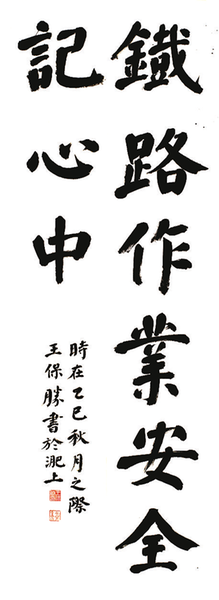 鐵路作業安全
記心中
時在乙巳秋月之際
王保勝書於淝上